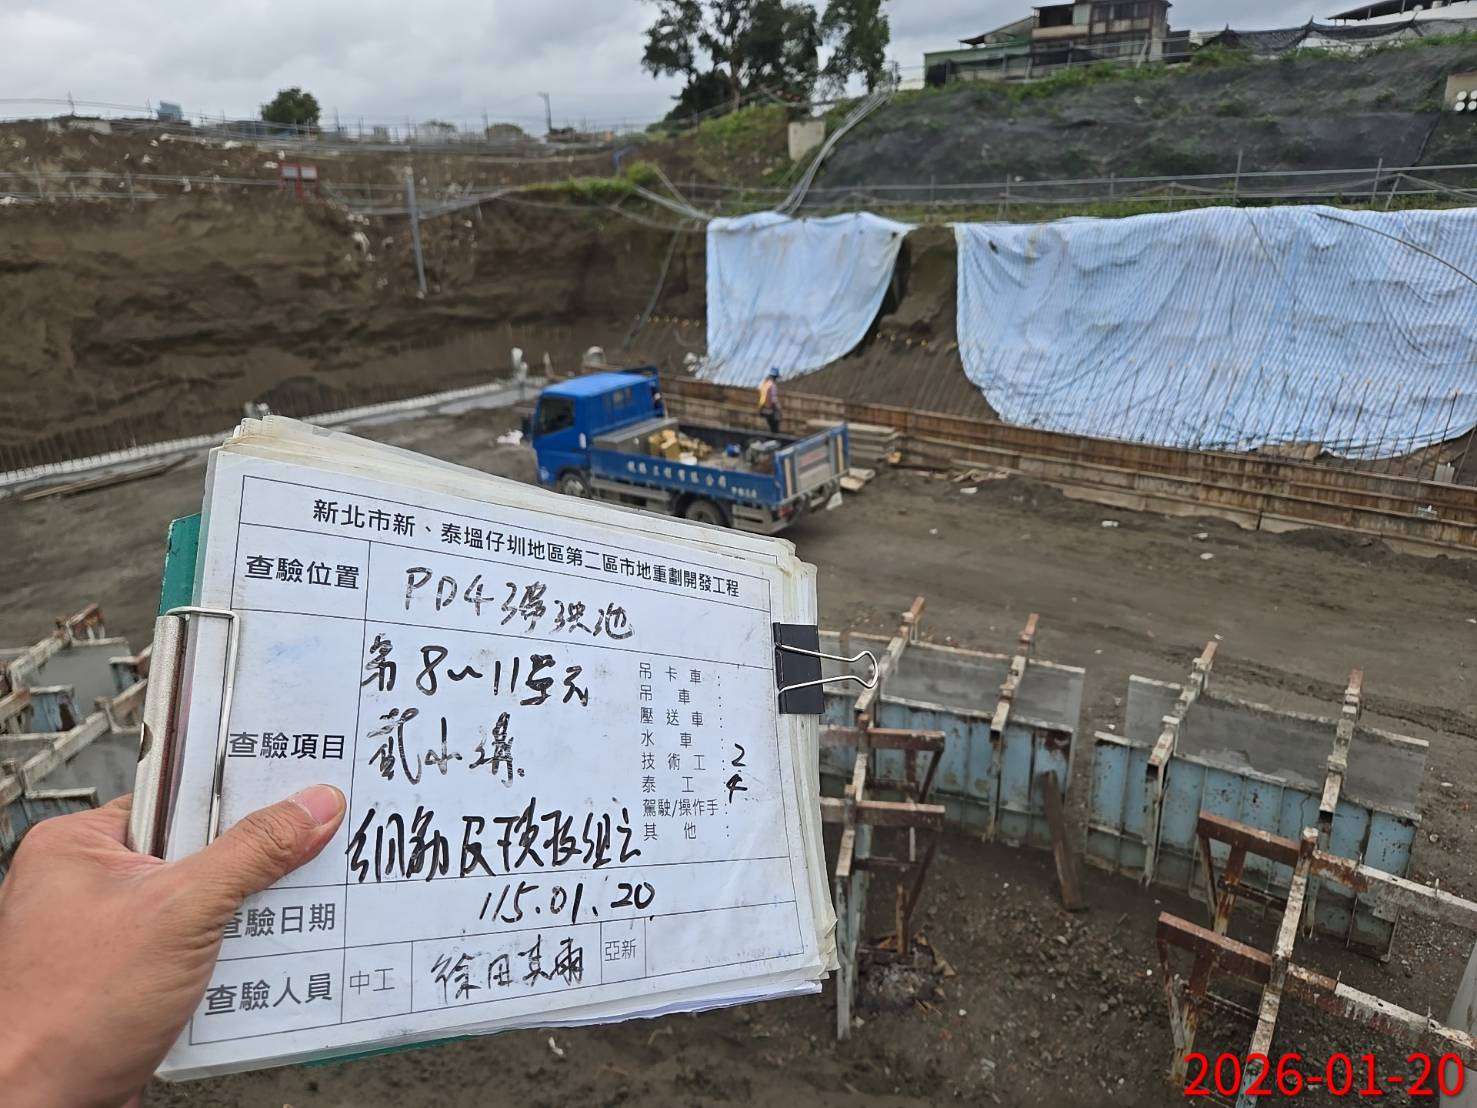 新北市新、泰塭仔圳地區第二區市地重劃開發工程
查驗位置
PD4滯洪池
查驗項目
第8~11單元
截水溝
鋼筋及模板組立
吊卡車：
吊車：
壓送車：
水車：
技術工：2
泰工：4
駕駛/操作手：
其他：
查驗日期
115.01.20
查驗人員
中工
亞新
工程有限公司
2026-01-20